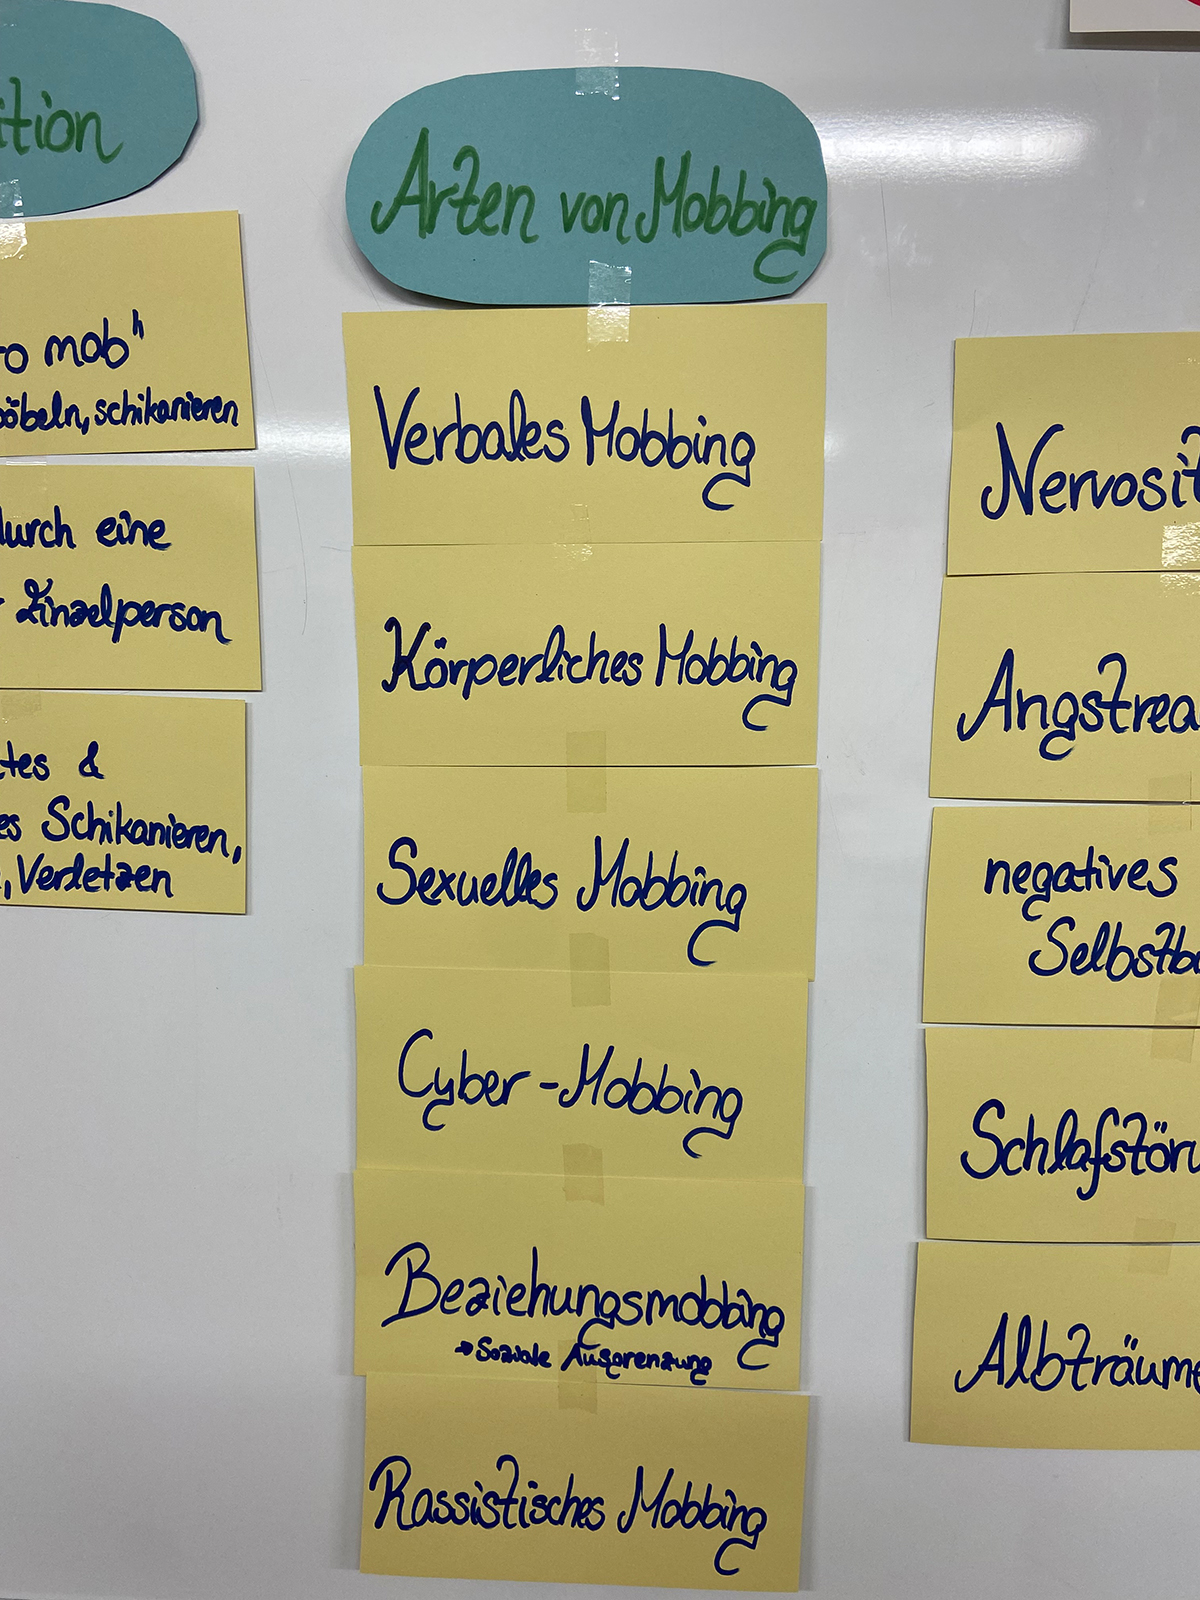 ition
to mob"
pöbeln, schikanieren
durch eine
Einzelperson
tes &
es Schikanieren,
, Verletzen
Arten von Mobbing
Verbales Mobbing
Körperliches Mobbing
Sexuelles Mobbing
Cyber-Mobbing
Beziehungsmobbing
→ Soziale Ausgrenzung
Rassistisches Mobbing
Nervosit
Angstrea
negatives
Selbstb
Schlafstöru
Albträume